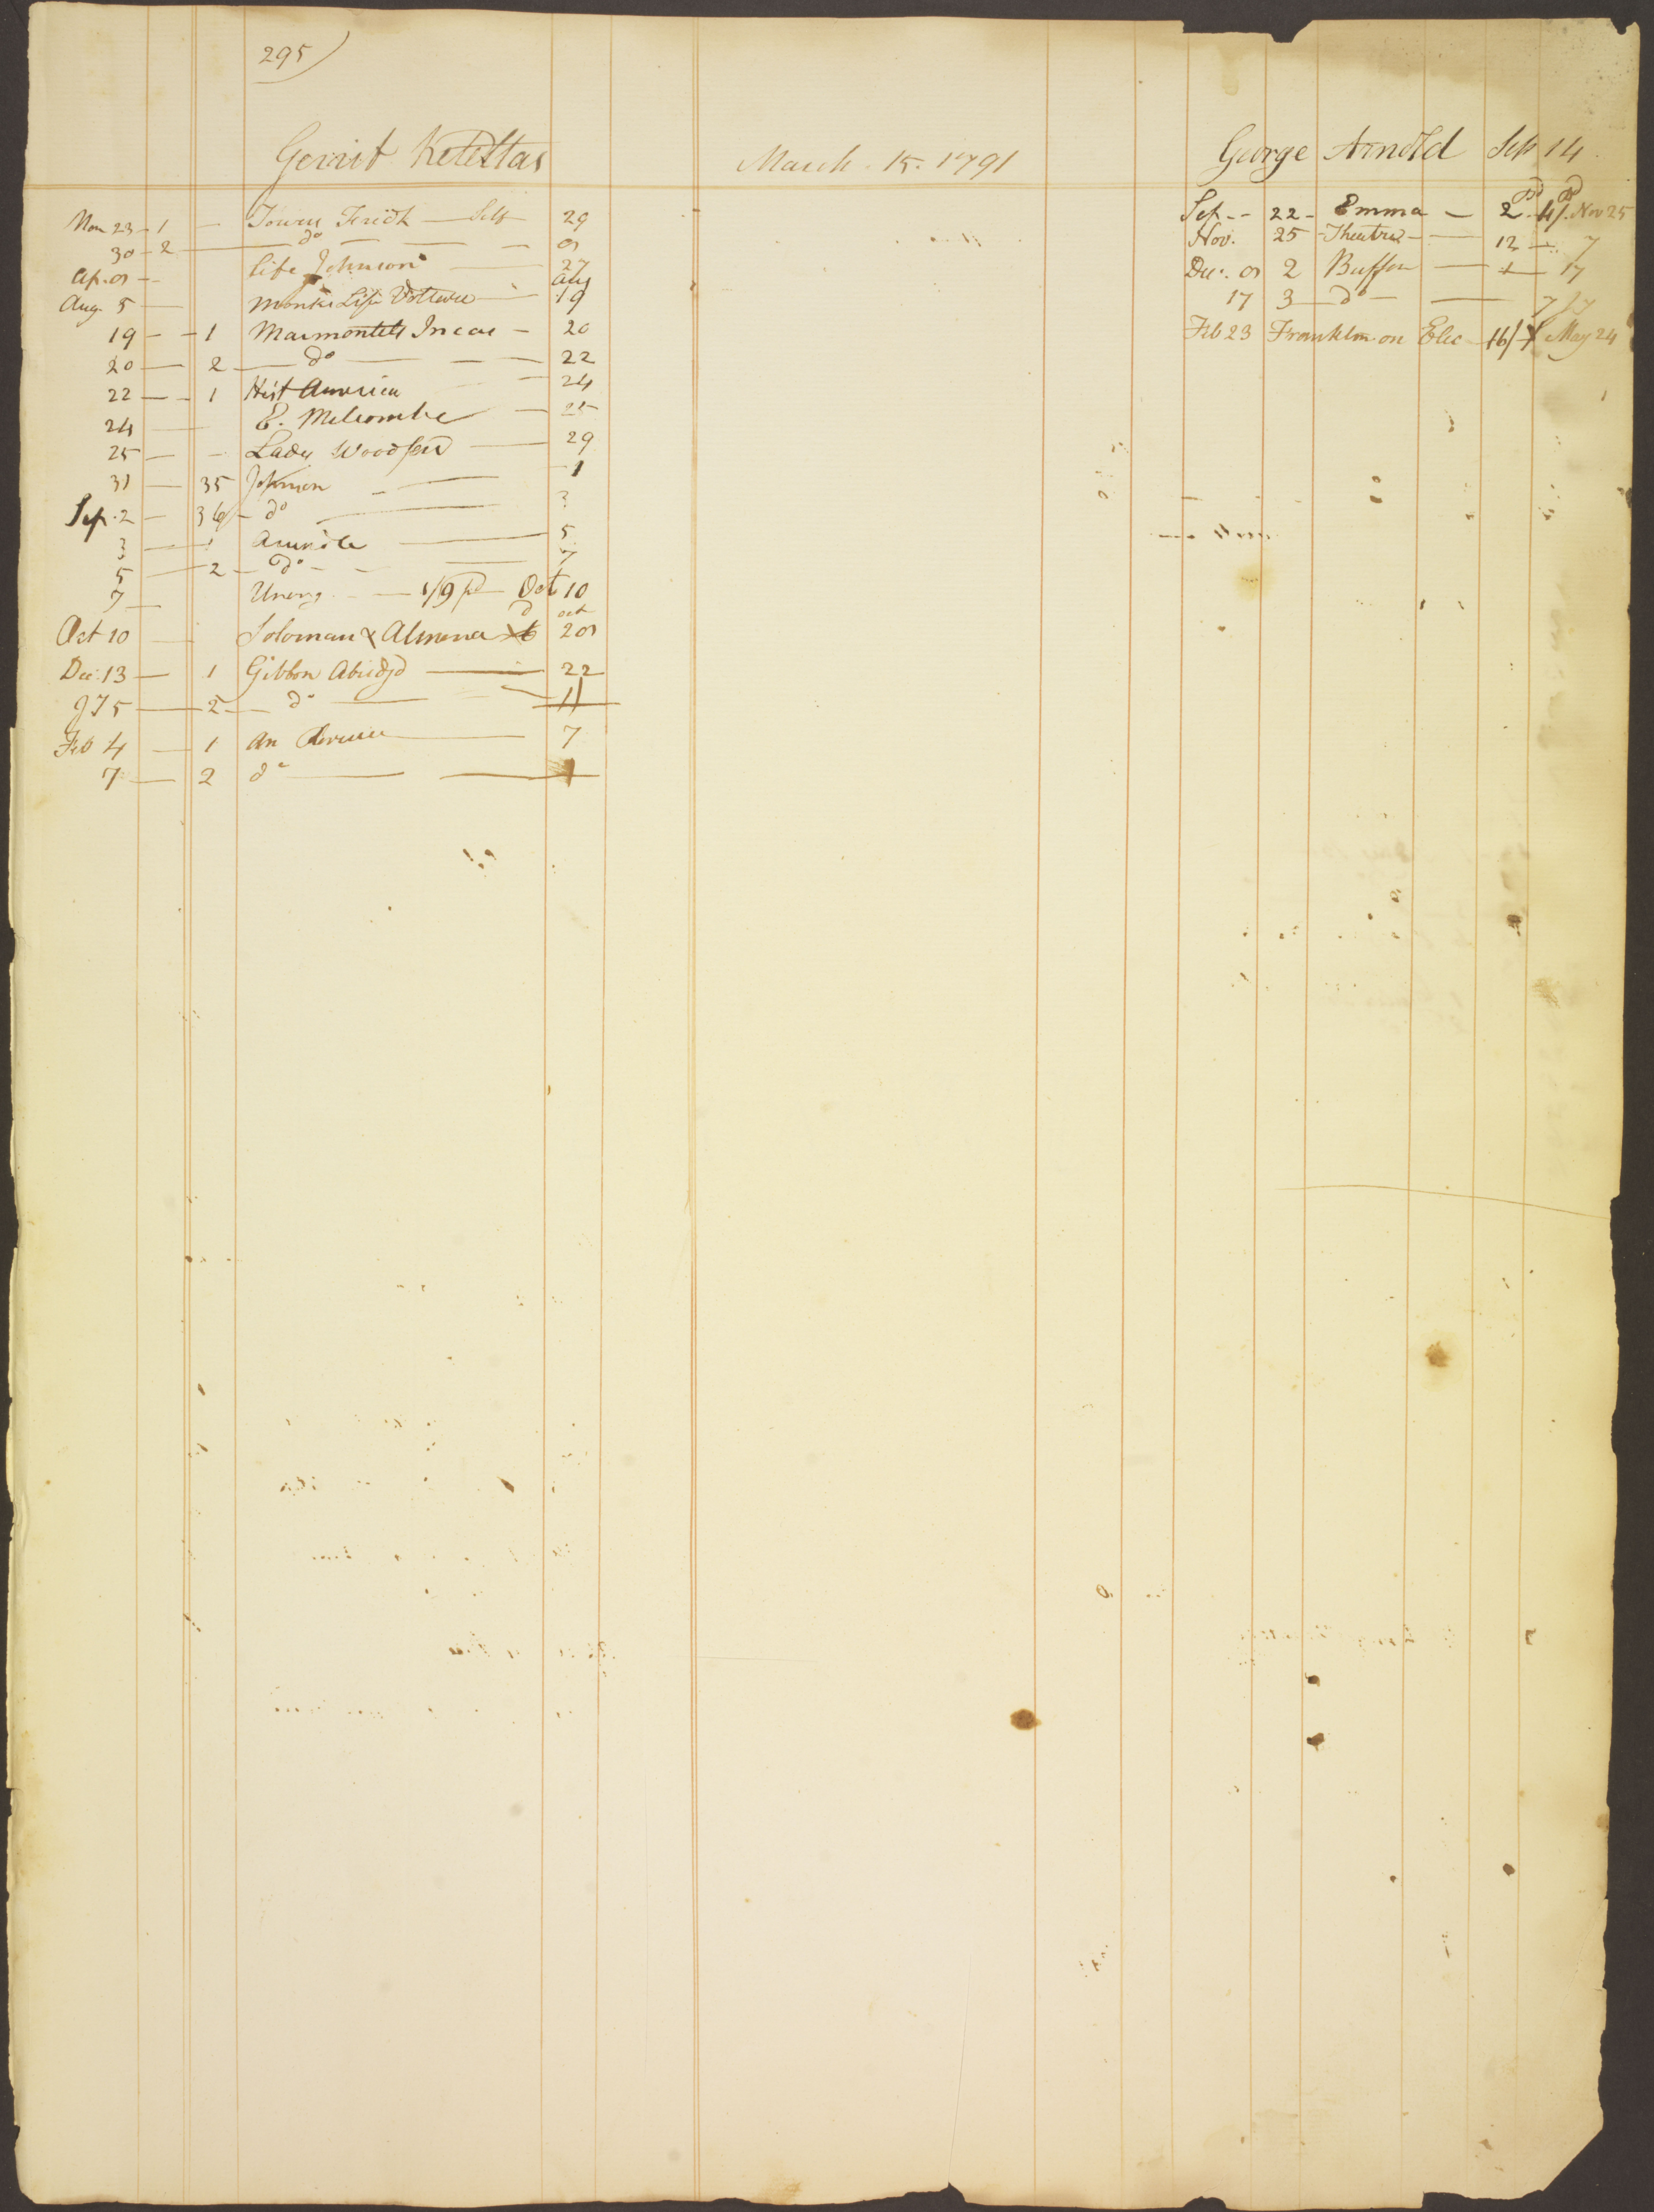 295
Gerrit Keteltas
March 15. 1791
Mar 23 - 1 - Towers Fredk — Self 29
30 - 2 — do — 8
Ap. 8 - Life Johnson — 27
Aug
Aug. 5 — Monks Life Voltaire — 19
19 - 1 Marmontels Incas - 20
20 — 2 — do — 22
22 — 1 Hist America — 24
24 — E. Melcombe — 25
25 — Lady — 29
31 — 35 Johnson — 1
Sep. 2 — 36 - do — 3
3 — 1 Arundle — 5
5 — 2 — do - - 7
7 — 1/9 pd Oct 10
oct
Oct 10 — Soloman & Almena 28
Dec. 13 — 1 Gibbon Abridgd — 22
5 — 2 — do — 11
Feb 4 — 1 An — 7
7 — 2 do — 1
George Arnold Sep 14
Sep - - 22 - Emma — 2 - 4/. Nov 25
Nov. 25 - Theatre — 12 — 7
Dec. 8 2 Buffon — + — 17
17 3 — do —
Feb 23 Franklin on Elec — 16/ May 24